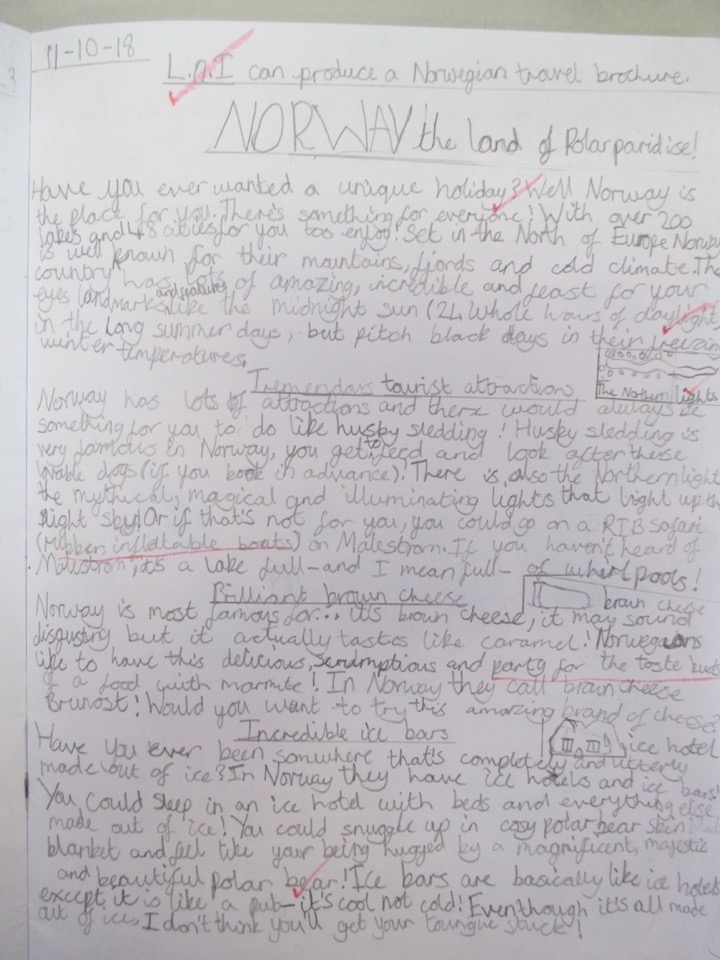 11-10-18
L.n.I can produce a Norwegian travel brochure.
NORWAY the land of Polar paridise!
Have you ever wanted a unique holiday? Well Norway is
the place for you. There's something for everyone! With over 200
lakes and 48 cities for you too enjoy! Set in the North of Europe Norway
is well known for their mountains, fjords and cold climate. The
country has lots of amazing, incredible and feast for your
eyes landmarks and like the midnight sun (24 whole hours of daylight
in the long summer days, but pitch black days in their freezing
winter temperatures.
The Nothern lights
Tremendars tourist attractions
Norway has lots of attractions and there would always be
something for you to do like husky sledding! Husky sledding is
very famous in Norway, you get to feed and look after these
lovable dogs (if you book in advance). There is also the Northern light
the mythical, magical and illuminating lights that light up the
night sky! Or if that's not for you, you could go on a RIB safari
(rubber inflatable boats) on Malestrom. If you haven't heard of
Malestrom, it's a lake full - and I mean full - of whirlpools!
Brilliant brown cheese
brown chese
Norway is most famous for... it's brown cheese, it may sound
disgusting but it actually tastes like caramel! Norwegians
like to have this delicious, scrumptious and party for the taste buds
of a food with marmite! In Norway they call brown cheese
Brunost! Would you want to try this amazing brand of cheese?
Incredible ice bars
ice hotel
Have you ever been somwhere that's completely and utterly
made out of ice? In Norway they have ice hotels and ice bars!
You could sleep in an ice hotel with beds and everything else
made out of ice! You could snuggle up in cosy polar bear skin
blanket and feel like your being hugged by a magnificent, majestic
and beautiful polar bear! Ice bars are basically like ice hotels
except it is like a pub - it's cool not cold! Even though it's all made
out of ice, I don't think you'll get your toungue stuck!